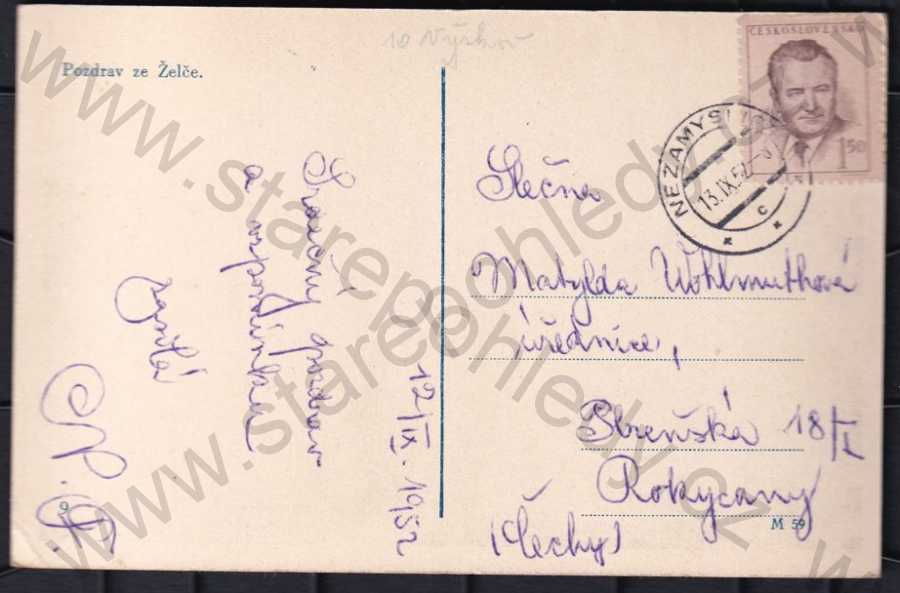 10 Vyškov
Pozdrav ze Želče.
Srdečný pozdrav
a vzpomínku
zasílá
12/IX. 1952
9
ČESKOSLOVENSKO
1.50
NEZAMYSL
13.IX.52
C
Slečna
Matylda Wohlmuthová
úřednice,
Plzeňská 18/I
Rokycany
(Čechy)
M 59
www.starepohledy.cz